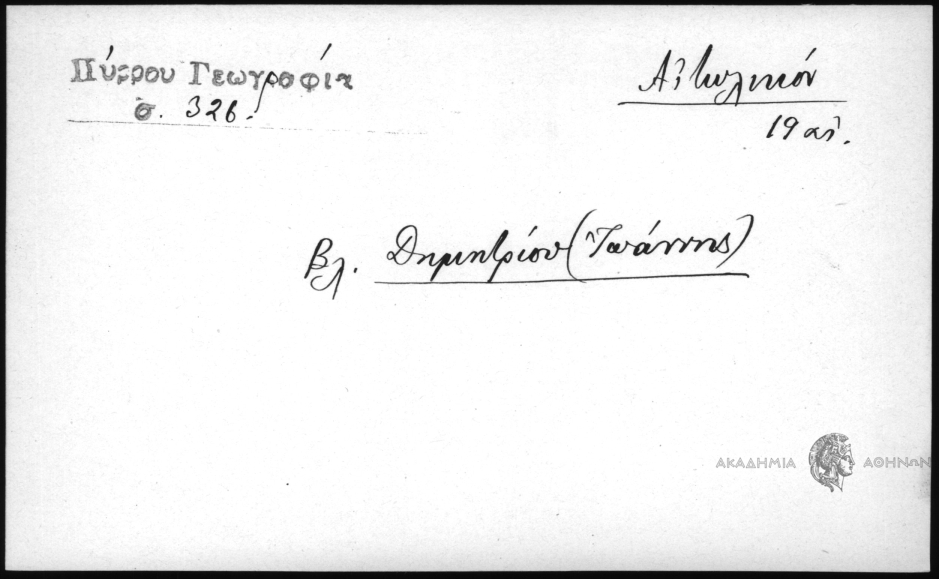 Πύρρου Γεωγραφία
σ. 326.
Αἰτωλικόν
19 αἰ.
Βλ. Δημητρίου (Ἰωάννης)
ΑΚΑΔΗΜΙΑ ΑΘΗΝΩΝ